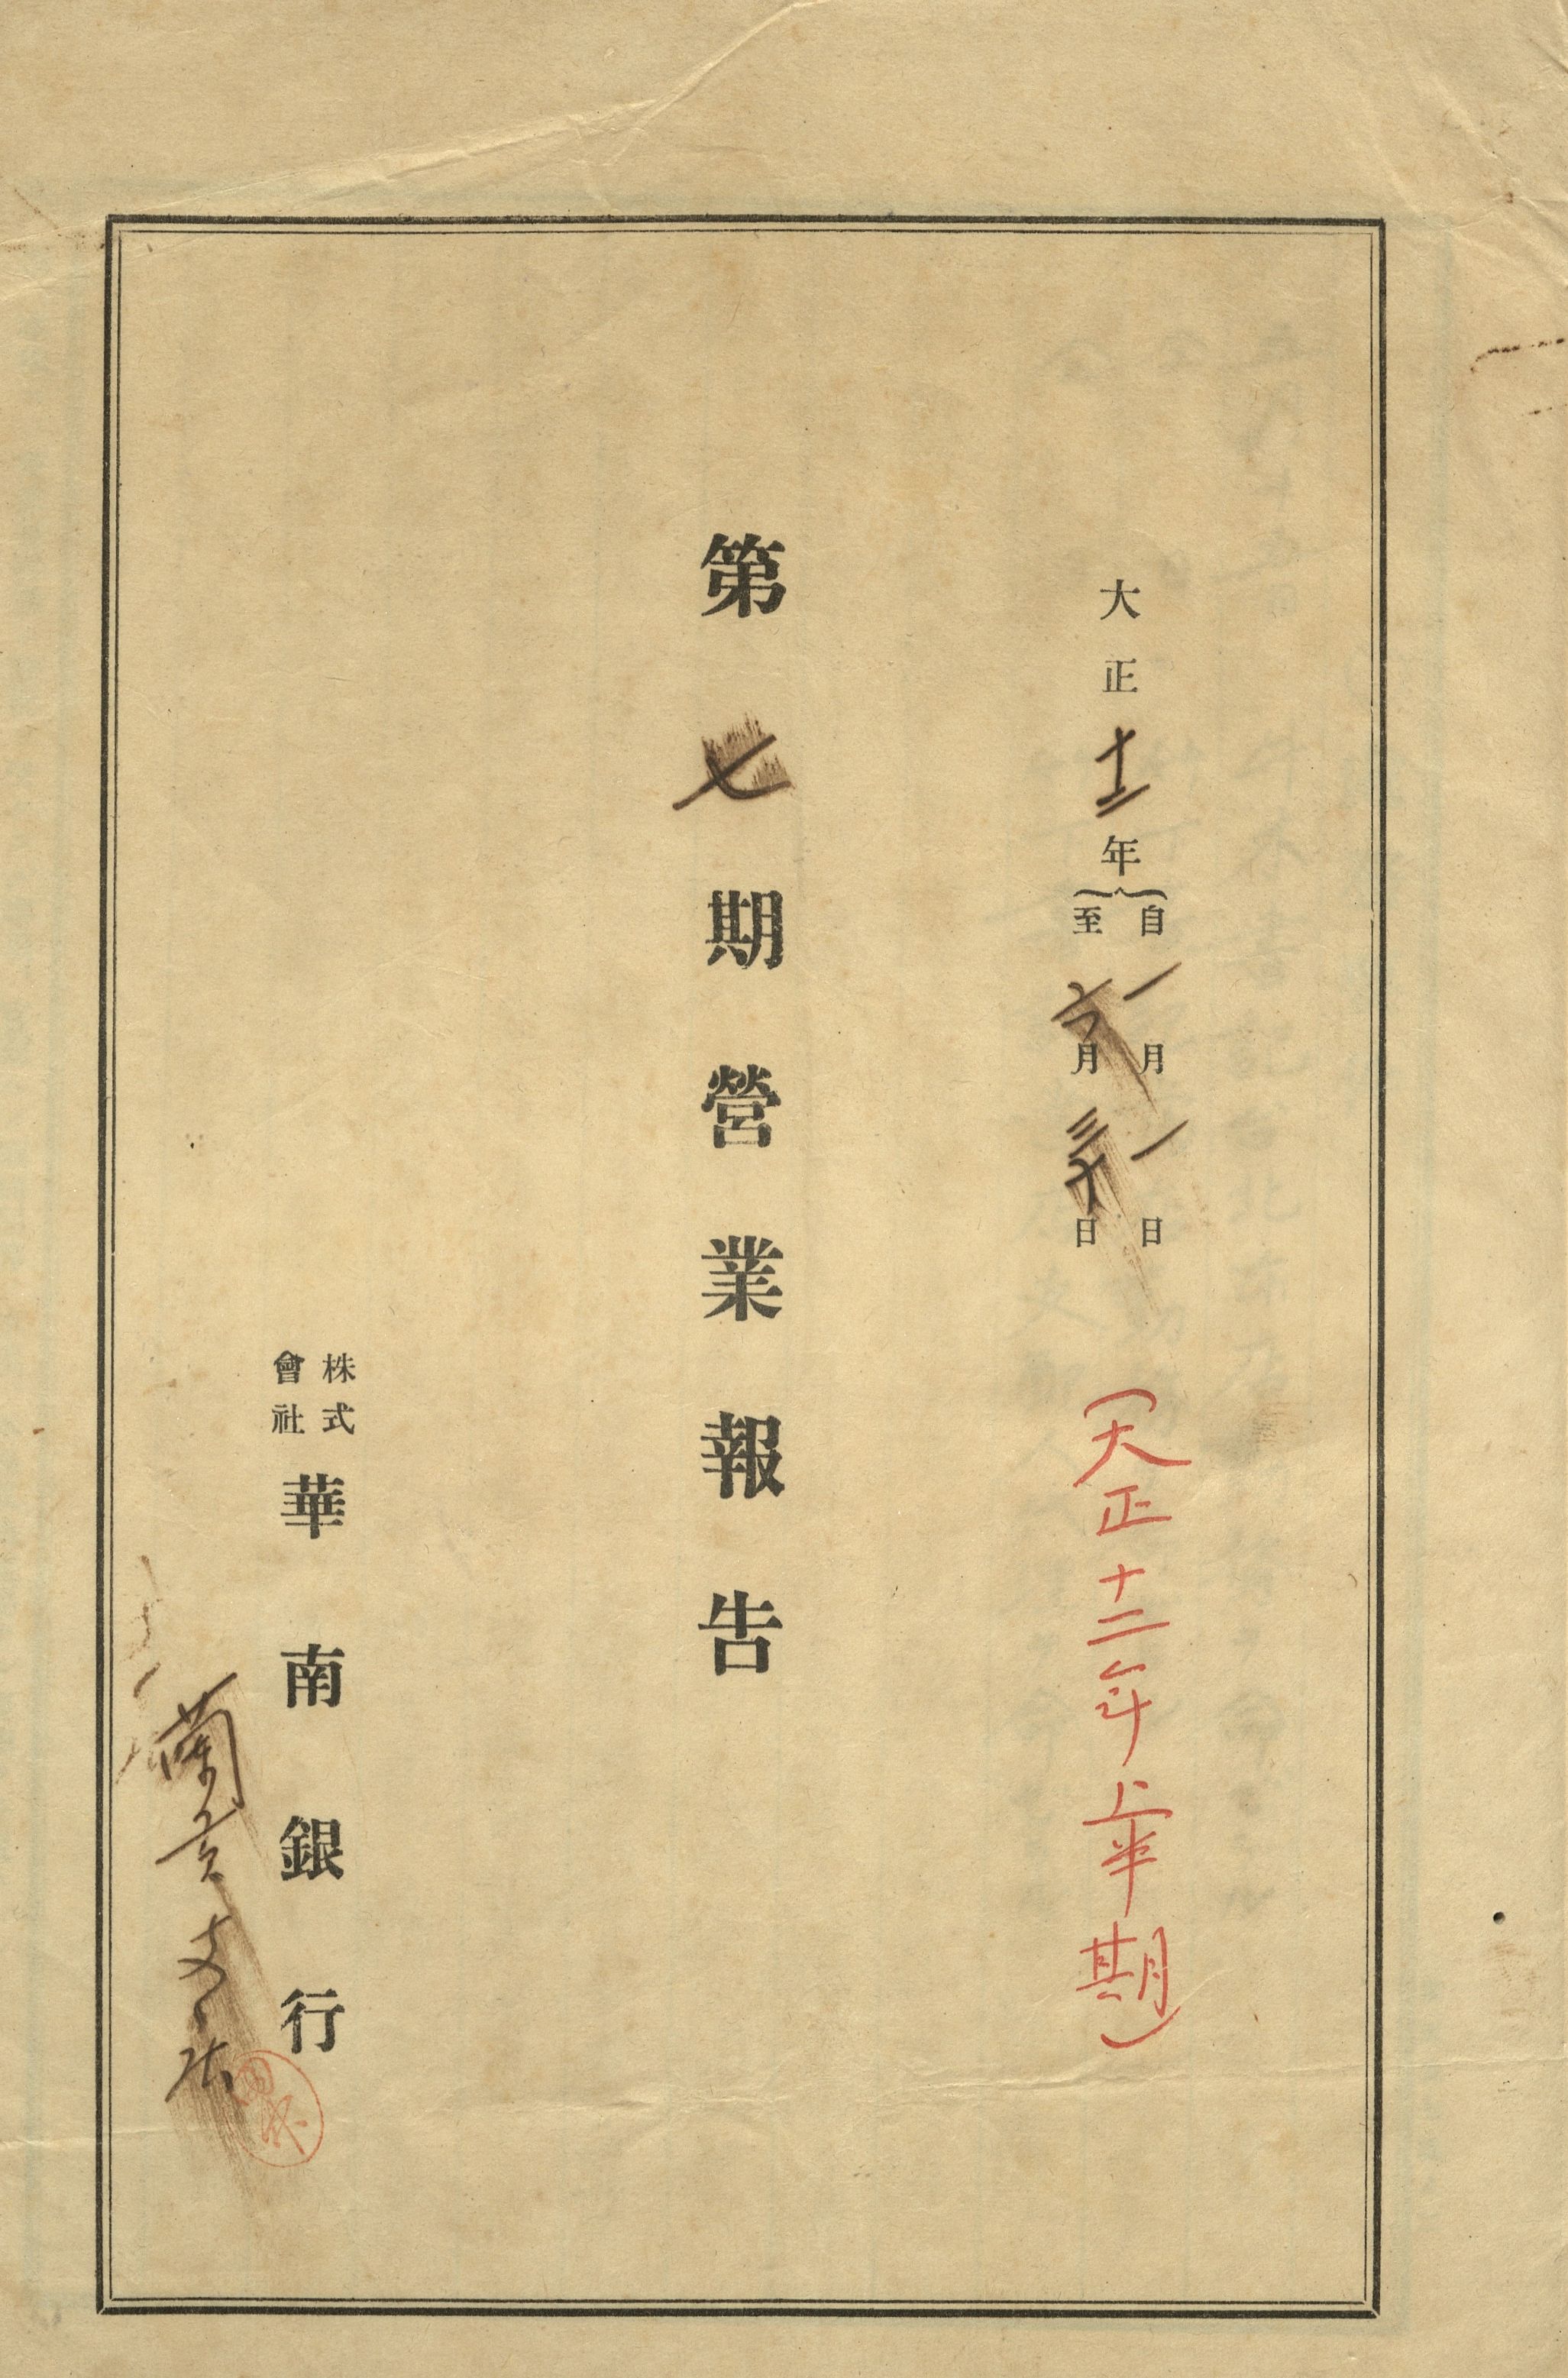 大正十二年自一月一日
至六月三十日
(大正十二年上半期)
第七期營業報告
株式會社華南銀行
蘭貢支店